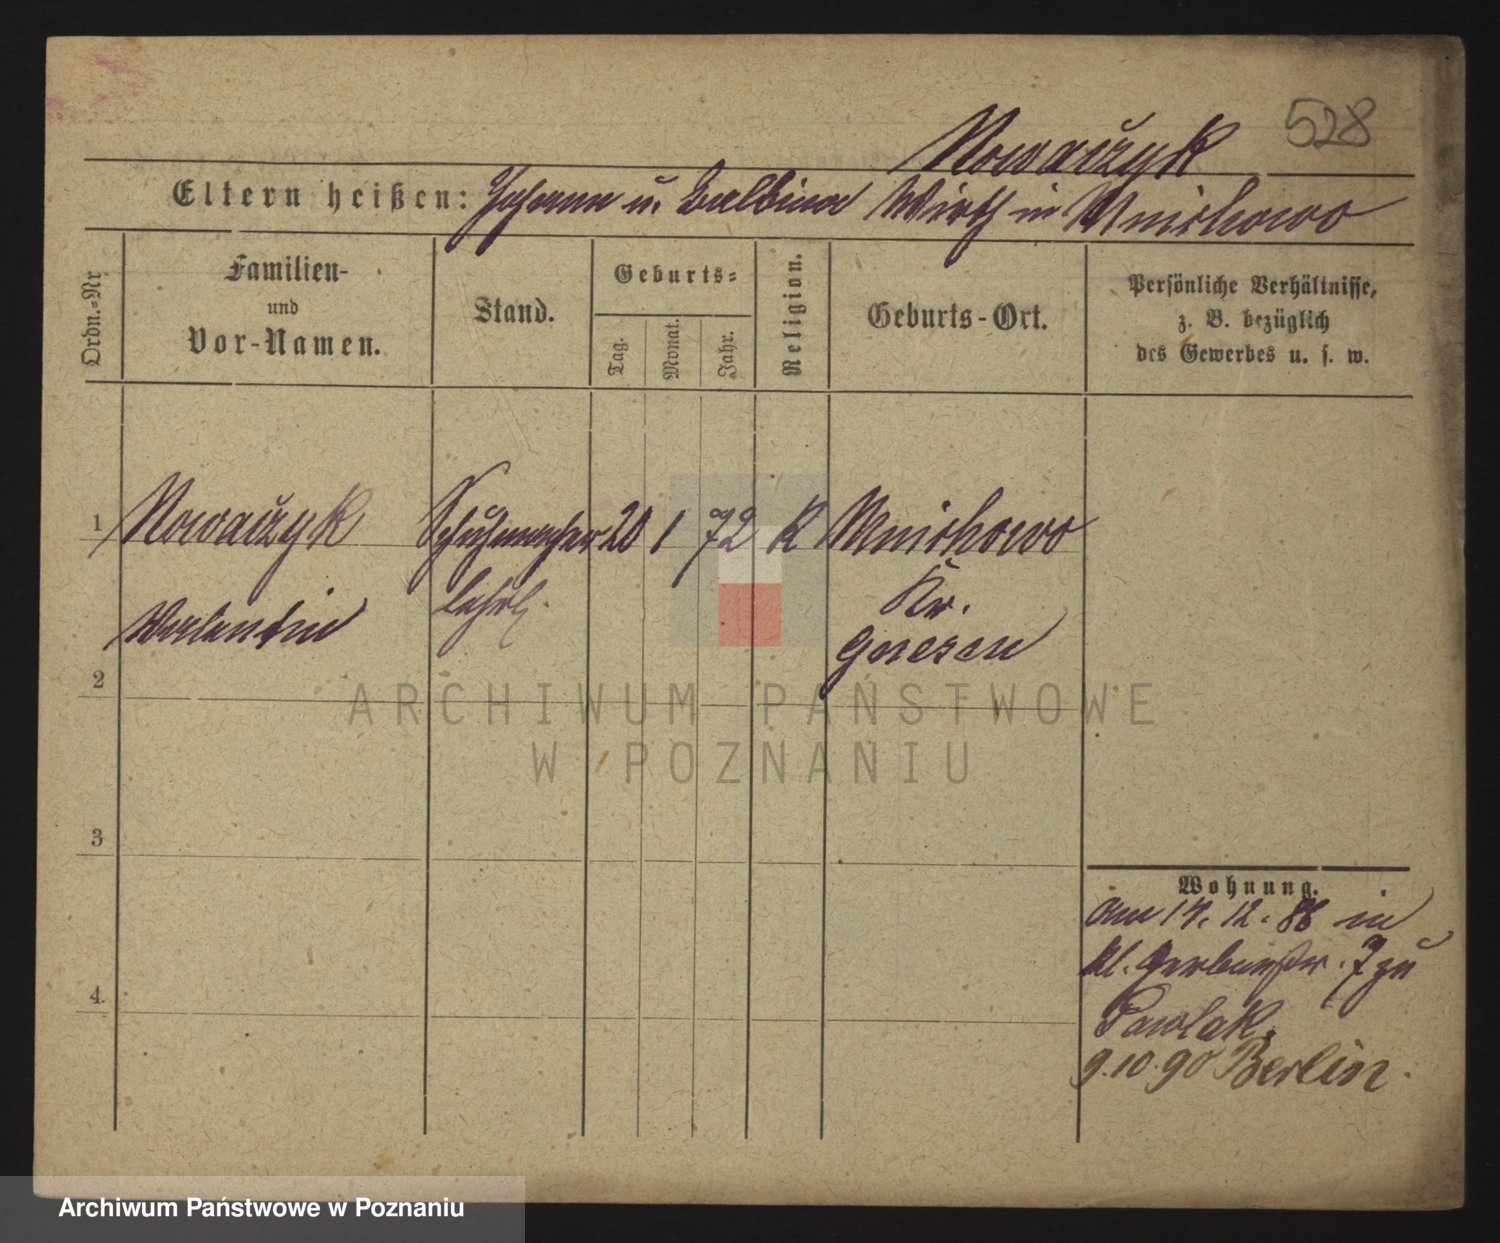 528
Nowaczyk
Eltern heißen: Johann u. Balbina Wirth in Mnichowo
Ordn.-Nr
Familien-
und
Vor-Namen.
Stand.
Geburts-
Tag.
Monat.
Jahr.
Religion.
Geburts-Ort.
Persönliche Verhältnisse,
z. B. bezüglich
des Gewerbes u. s. w.
1 Nowaczyk Schuhmacher 20 1 72 K Mnichowo
lehrl. Kr.
Valentin Gnesen
2
3
4.
Wohnung.
am 14. 12. 86 in
kl. Gerberstr. 7 zu
Pawlak.
9.10.90 Berlin.
ARCHIWUM PAŃSTWOWE
W POZNANIU
Archiwum Państwowe w Poznaniu